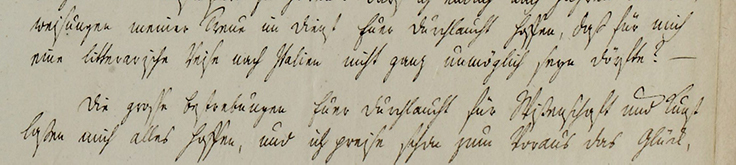 weisungen meiner Treue im Dienst Euer Durchlaucht hoffen, daß für mich
eine litterarische Reise nach Italien nicht ganz unmöglich seyn dörfte? —
Die grosse bestrebungen Euer Durchlaucht für Wissenschaft und Kunst
lassen mich alles hoffen, und ich preise schon zum Voraus das Glück,